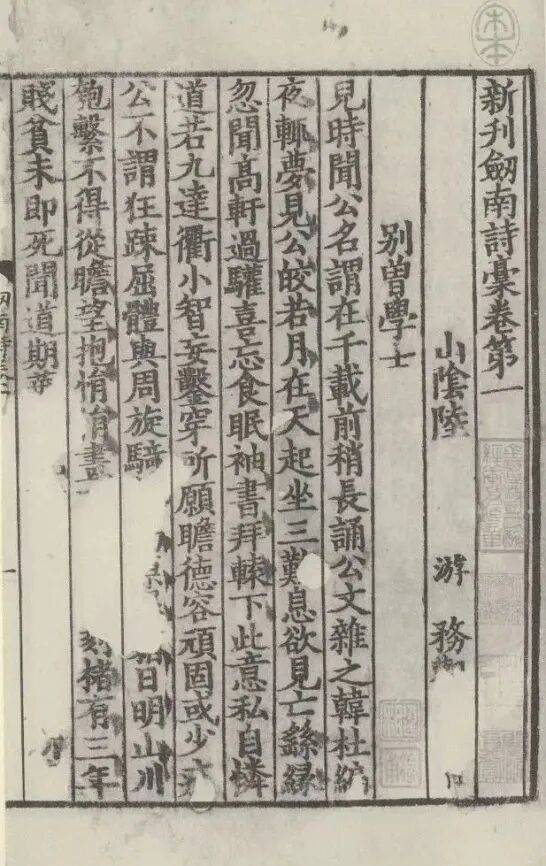 新刊劒南詩稾卷第一
山陰陸 游 務
别曾學士
兒時聞公名謂在千載前稍長誦公文雜之韓杜編
夜輒夢見公皎若月在天起坐三歎息欲見亡繇緣
忽聞高軒過驩喜忘食眠袖書拜轅下此意私自憐
道若九達衢小智妄鑿穿所願瞻德容頑固或少
公不謂狂踈屈體與周旋騎 日明山川
匏繫不得從瞻望抱悁悁畫 楮有三年
賤貧未即死聞道期